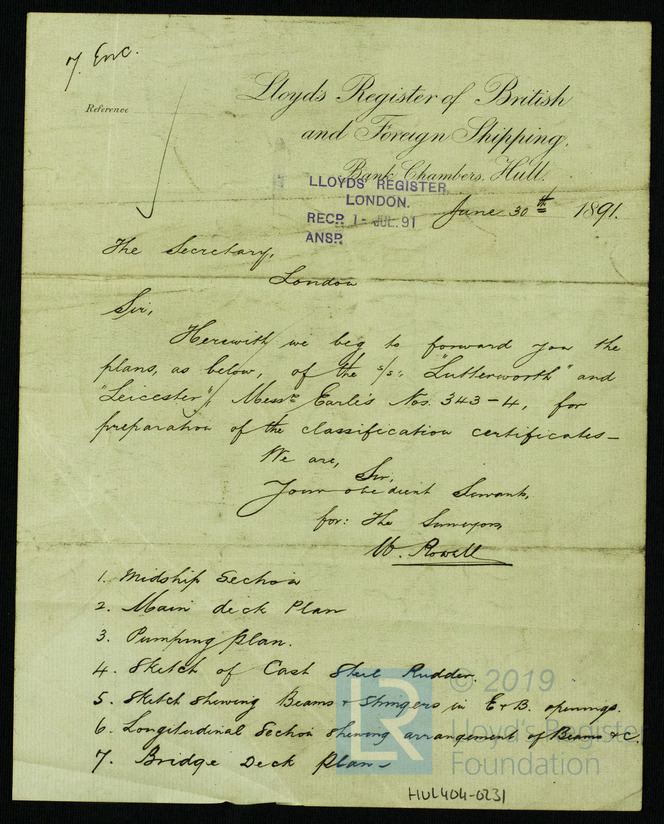 7. Enc.
Reference
Lloyds Register of British
and Foreign Shipping,
Bank Chambers, Hull.
LLOYDS' REGISTER,
LONDON.
RECD. 1 - JUL. 91
ANSD.
June 30th 1891.
The Secretary,
London
Sir,
Herewith we beg to forward you the
plans, as below, of the s/s: "Lutterworth" and
"Leicester", Messrs Earle's Nos. 343-4, for
preparation of the classification certificates -
We are, Sir,
Your obedient Servants,
for: The Surveyors
W. Rowell
1. Midship Section
2. Main deck Plan
3. Pumping plan.
4. Sketch of Cast Steel Rudder.
5. Sketch shewing Beams & Stringers in E & B. openings.
6. Longitudinal Section shewing arrangement of Beams &c.
7. Bridge Deck Plan -
© 2019
Lloyd's Register
Foundation
LR
HUL404-0231